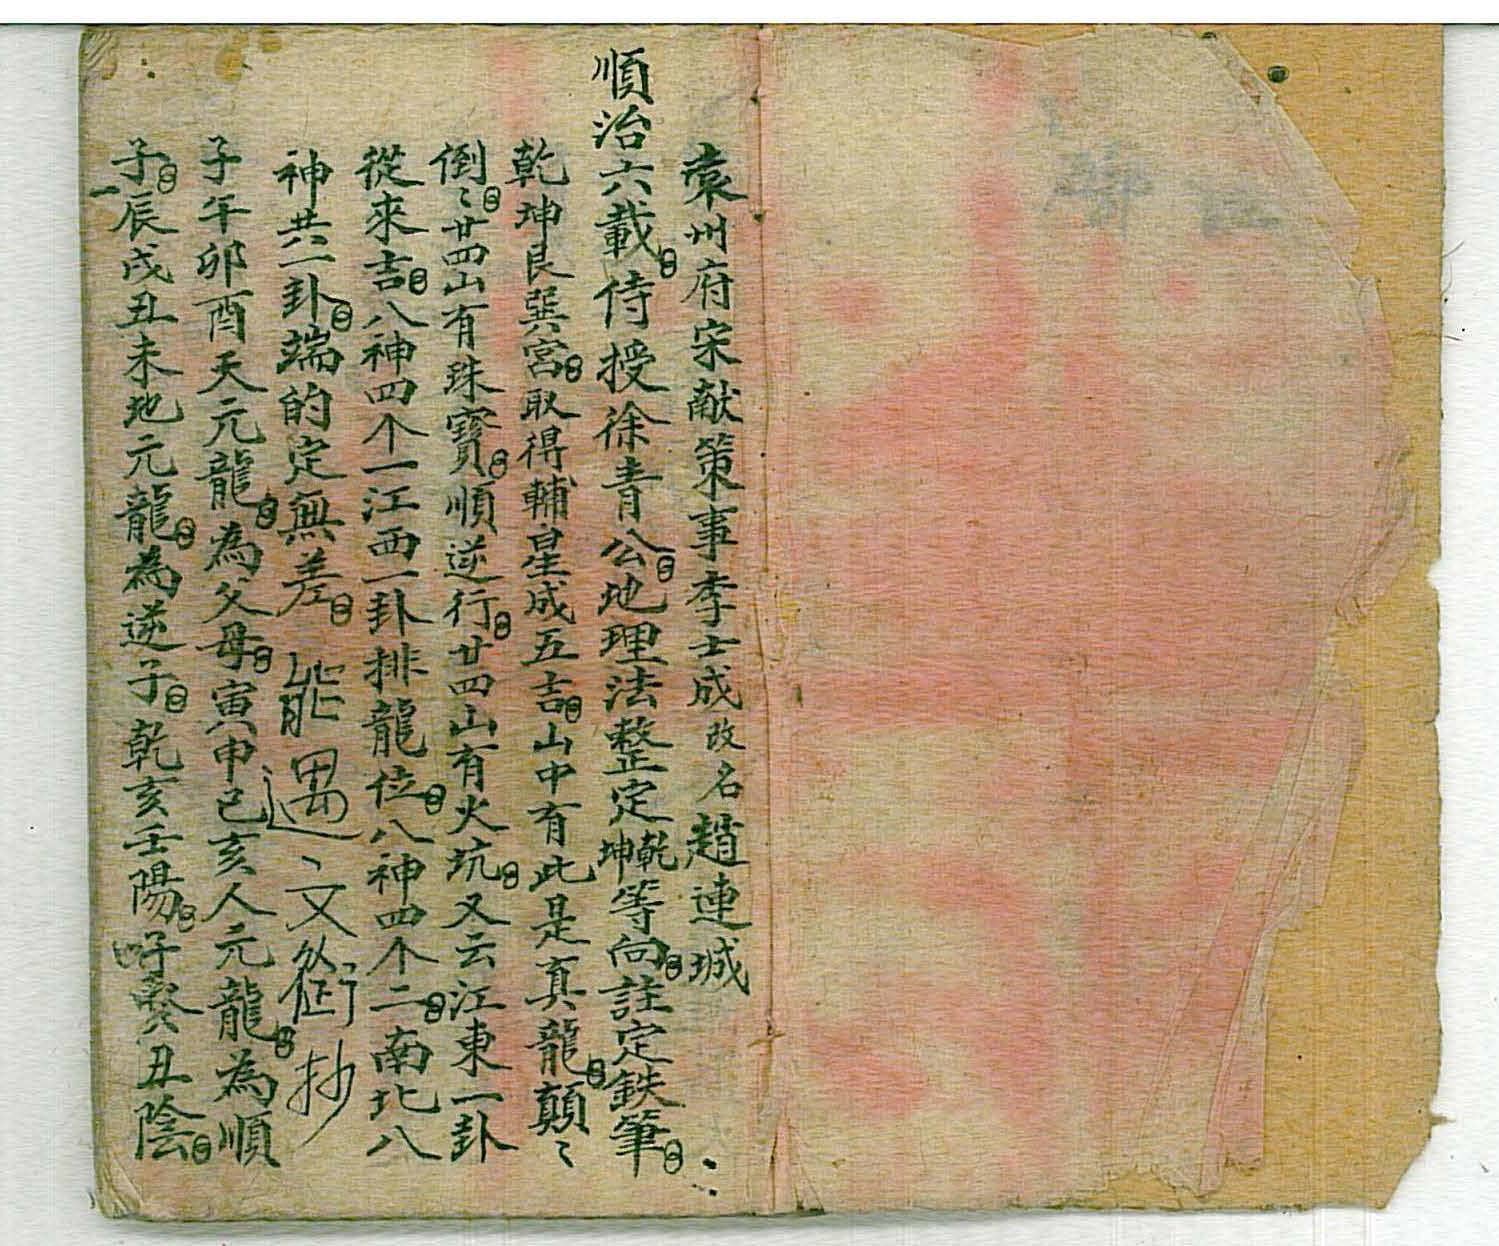 袁州府宋献策事李士成改名趙連城
順治六載侍授徐青公地理法整定乾坤等向註定鉄筆
乾坤艮巽宮取得輔星成五吉山中有此是真龍顛〻
倒〻廿四山有珠寶順逆行廿四山有火坑又云江東一卦
從來吉八神四个一江西一卦排龍位八神四个二南北八
神共一卦端的定無差 能遇〻文 抄
子午卯酉天元龍為父母寅申巳亥人元龍為順
子辰戌丑未地元龍為逆子乾亥壬陽子癸丑陰